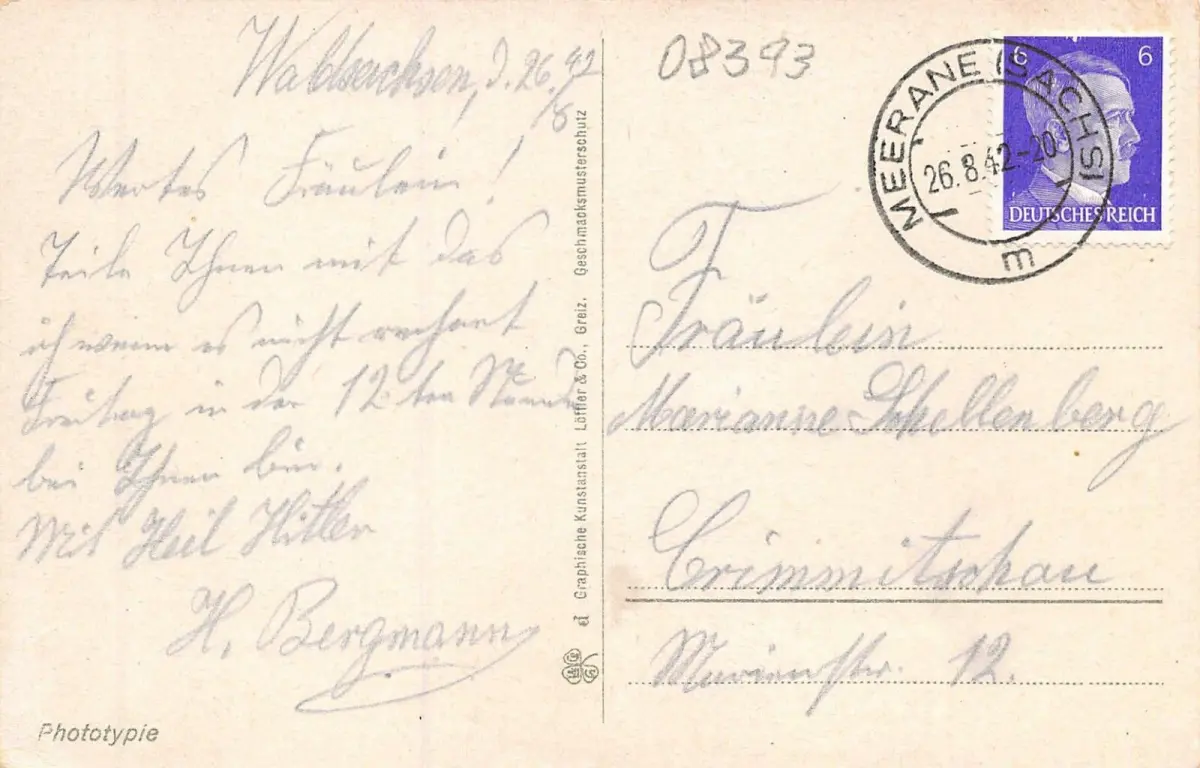 Waldsachsen, d. 26/8 42
Wertes Fräulein!
teile Ihnen mit das
ich wenn es nicht
Freitag in der 12 ten Stunde
bei Ihnen bin.
Mit Heil Hitler
H. Bergmann
Phototypie
Graphische Kunstanstalt Löffler & Co., Greiz. Geschmacksmusterschutz
08393
MEERANE (SACHS)
26.8.42-20
e
6 6
DEUTSCHES REICH
Fräulein
Marianne Schellenberg
Crimmitschau
Marienstr. 12.